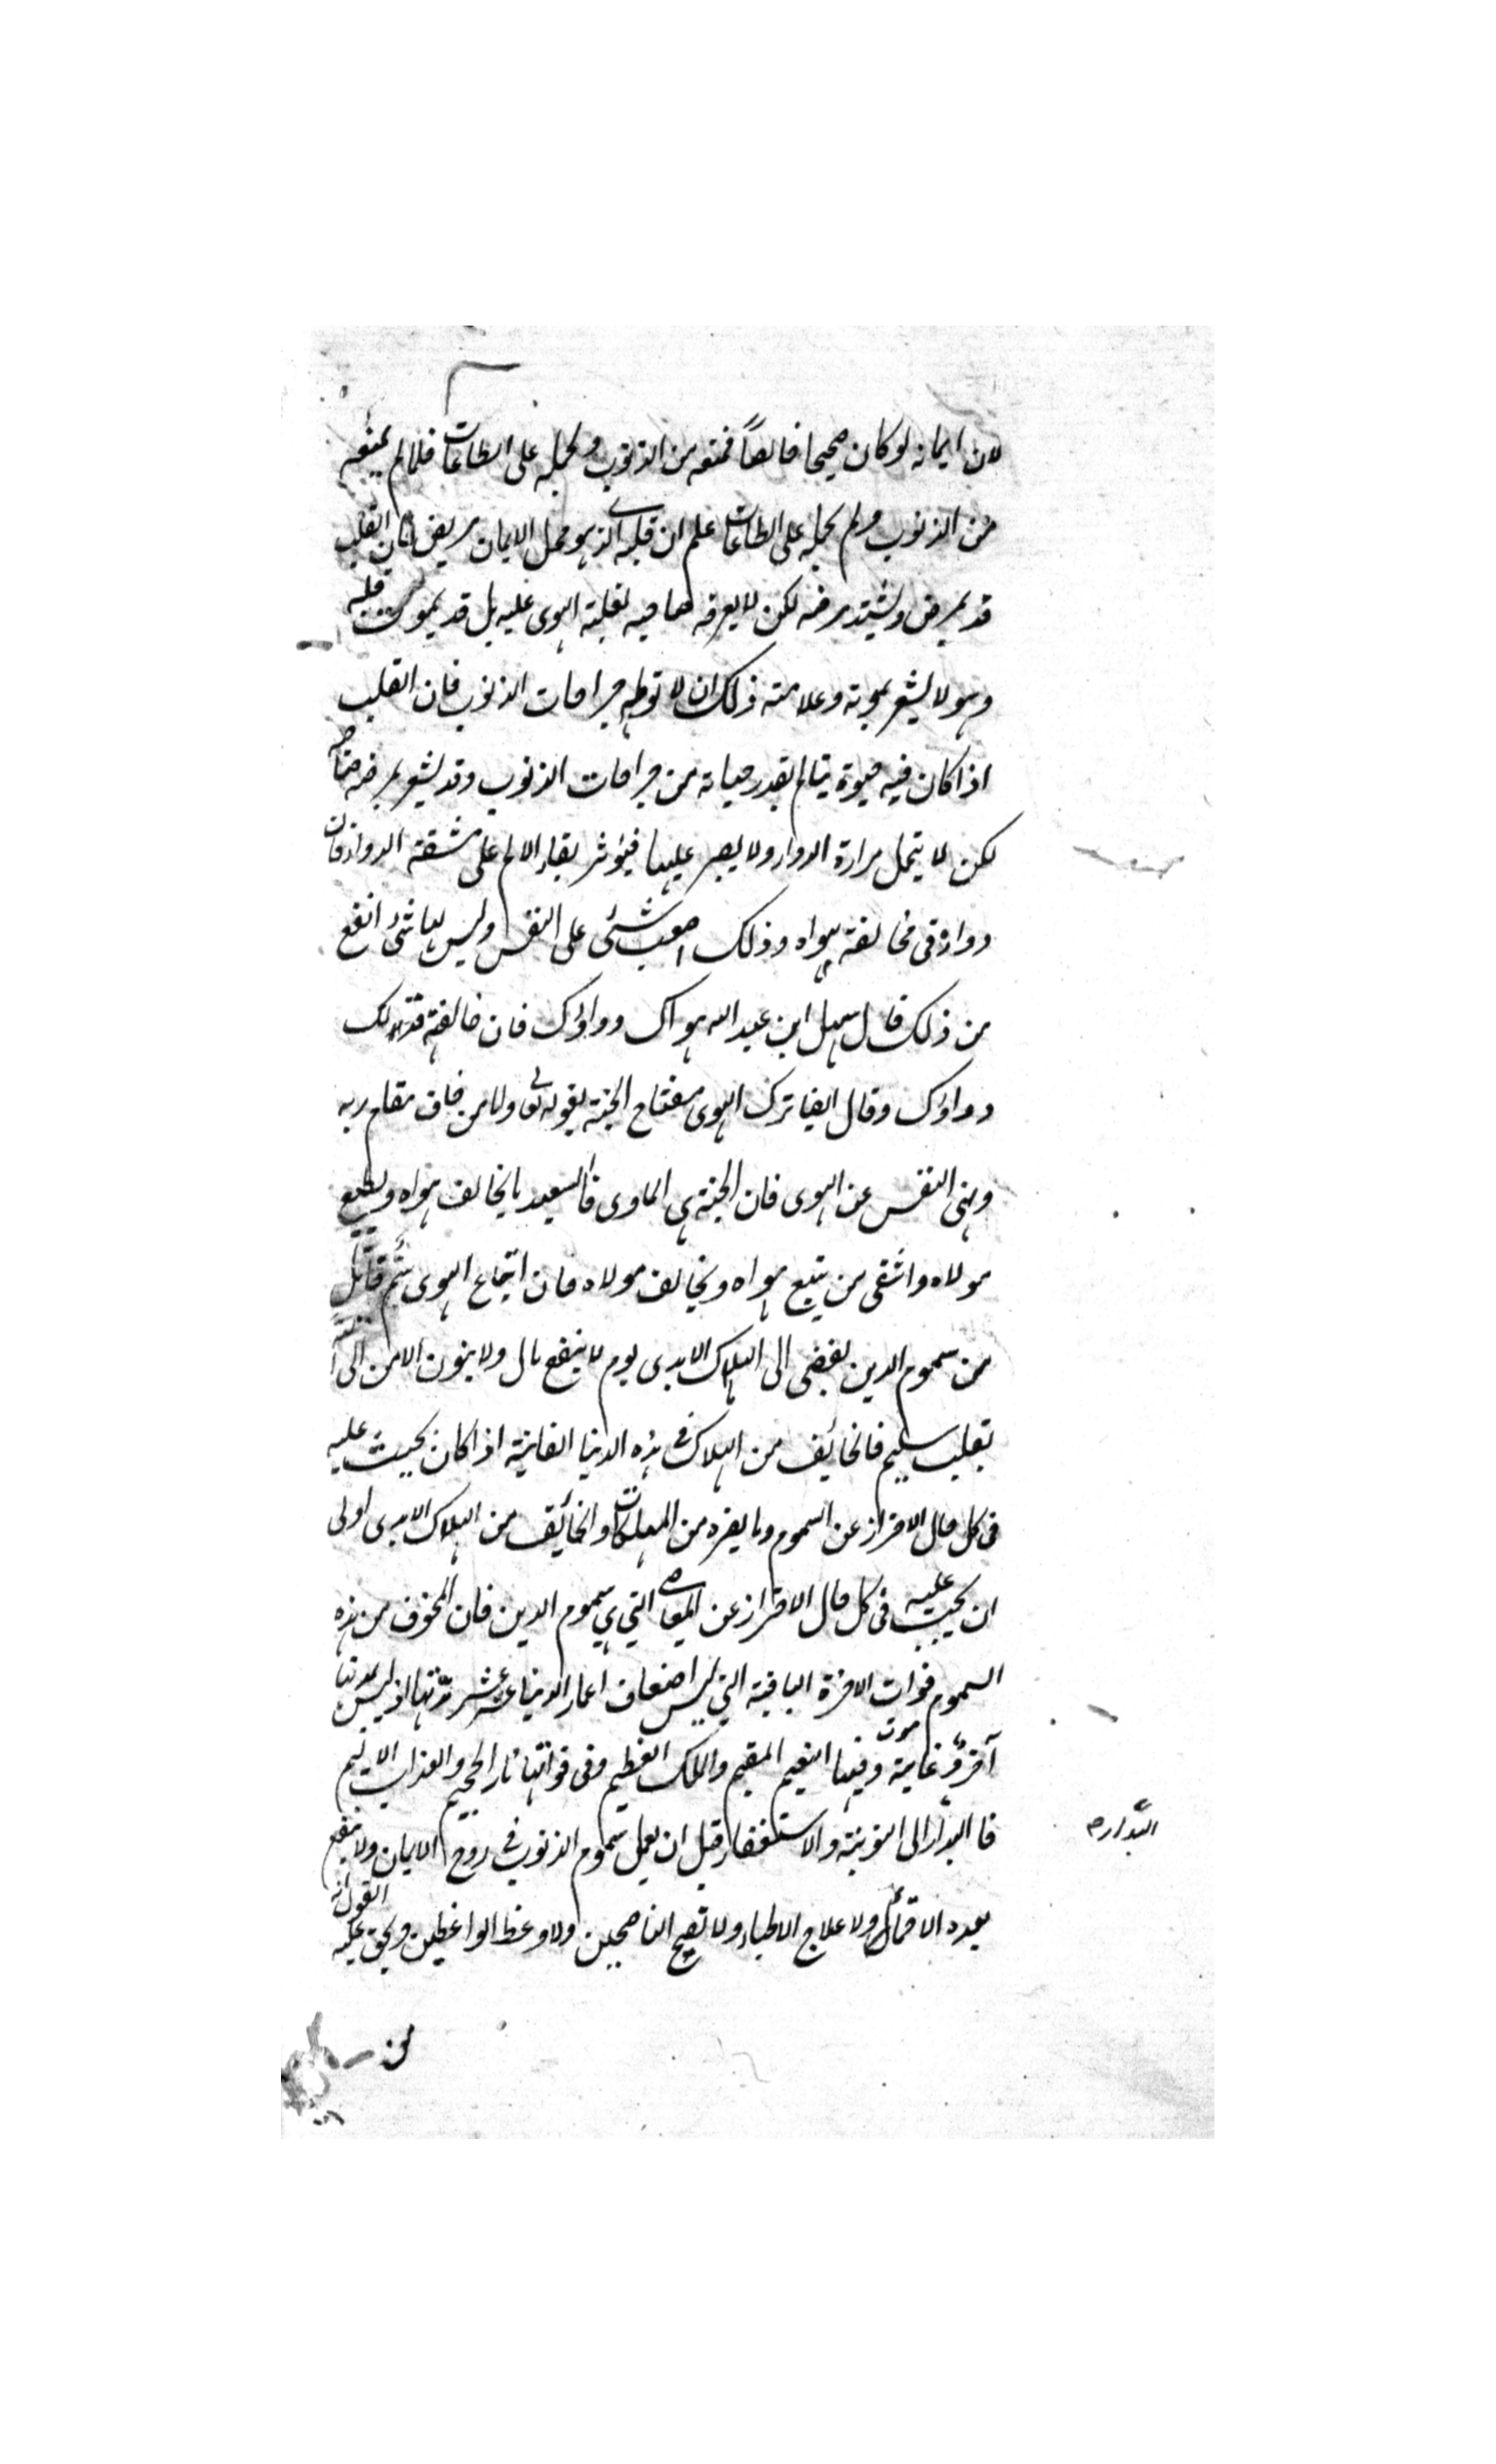 لان ايمانه لوكان صحيحا خالصاً لمنعه من الذنوب ولحمله على الطاعات فلما لم يمنعه
من الذنوب ولم يحمله على الطاعات علم ان قلبه الذي هو محل الايمان مريض فان القلب
قد يمرض ويشتد مرضه لكن لا يعرفه صاحبه لغلبة الهوى عليه بل قد يموت قلبه
وهو لا يشعر بموته وعلامته ذلك ان لا تولمه جراحات الذنوب فان القلب
اذا كان فيه حيوة يتالم بقدر حياته من جراحات الذنوب وقد يشعر بمرضه صاحبه
لكن لا يتحمل مرارة الدواء ولا يصبر عليها فيؤثر بقاء الالم على مشقة الدواء فان
دواءه في مخالفة هواه وذلك اصعب شئ على النفس وليس لها شئ انفع
من ذلك قال سهل ابن عبد الله هواك دواؤك فان خالفته فهو لك
دواؤك وقال ايضا ترك الهوى مفتاح الجنة لقوله تعالى ولمن خاف مقام ربه
ونهى النفس عن الهوى فان الجنة هي الماوى فالسعيد من يخالف هواه ويطيع
مولاه واشقى من يتبع هواه ويخالف مولاه فان اتباع الهوى سُم قاتل
من سموم الدين يفضى الى الهلاك الابدى يوم لا ينفع مال ولا بنون الا من اتى الله
بقلب سليم فالخائف من الهلاك في هذه الدنيا الفانية اذا كان يجب عليه
فى كل حال الاحتراز عن السموم وما يضره من المهلكات والخائف من الهلاك الابدى اولى
ان يجب عليه فى كل حال الاحتراز عن المعاصي التي هي سموم الدين فان المخوف من هذه
السموم فوات الاخرة الباقية التي ليس اضعاف اعمار الدنيا عشر عشر مدتها اذ ليس لمدتها
آخر وغاية موت وفيها النعيم المقيم والملك العظيم وفى فواتها نار الجحيم والعذاب الاليم
فالبدار الى التوبة والاستغفار قبل ان يعمل سموم الذنوب فى روح الايمان ولا ينفع
البدار
بعده الاحتماء ولا علاج الاطباء ولا نصح الناصحين ولا وعظ الواعظين ويحق عليه القول انه
من